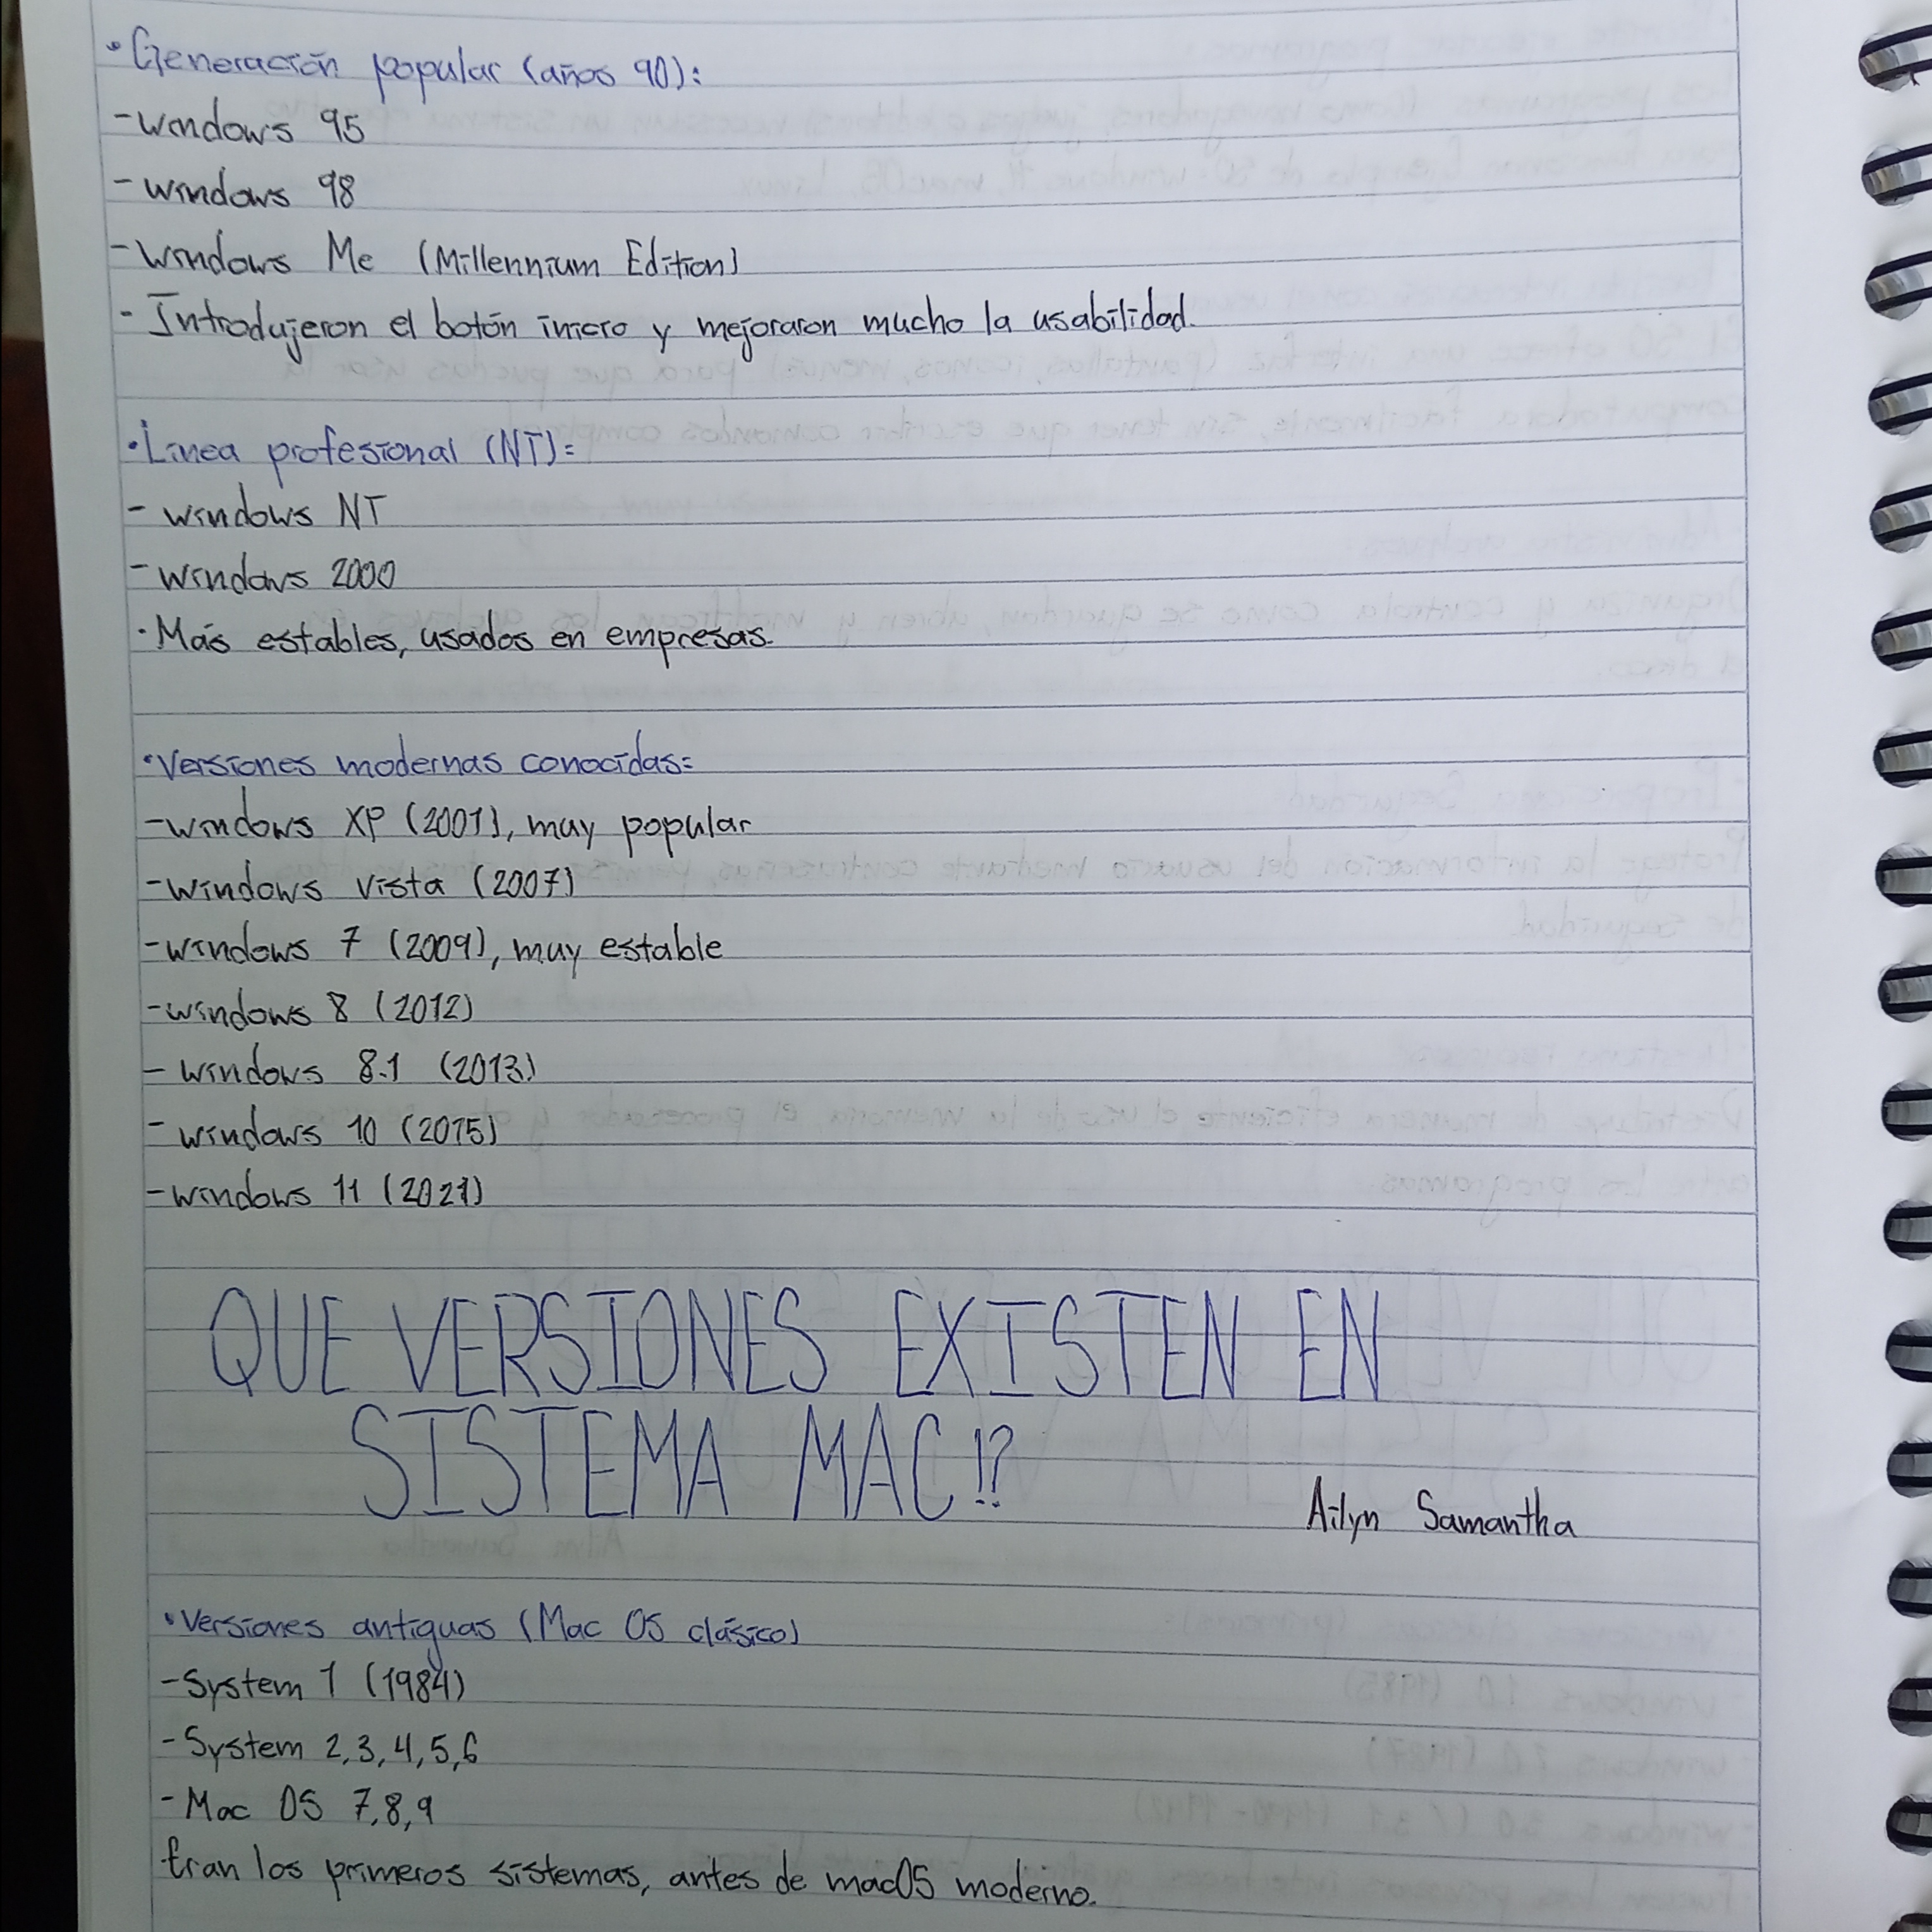 • Generación popular (años 90):
- windows 95
- windows 98
- Windows Me (Millennium Edition)
- Introdujeron el botón inicio y mejoraron mucho la usabilidad.
• Línea profesional (NT):
- windows NT
- windows 2000
· Más estables, usados en empresas.
• Versiones modernas conocidas:
- windows XP (2001), muy popular
- windows vista (2007)
- windows 7 (2009), muy estable
- windows 8 (2012)
- windows 8.1 (2013)
- windows 10 (2015)
- windows 11 (2021)
QUE VERSIONES EXISTEN EN
SISTEMA MAC!?
Ailyn Samantha
• Versiones antiguas (Mac OS clásico)
- System 1 (1984)
- System 2,3,4,5,6
- Mac OS 7,8,9
Eran los primeros sistemas, antes de macOS moderno.